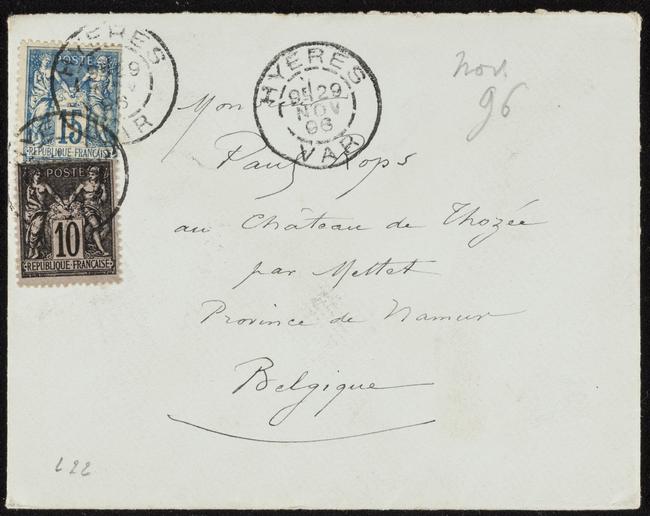 POSTE
15
REPUBLIQUE FRANÇAISE
POSTE
10
REPUBLIQUE FRANÇAISE
HYÈRES
29
VAR
HYÈRES
29
NOV
96
VAR
Nov.
96
Mon
Paul Rops
au Château de Thozée
par Mettet
Province de Namur
Belgique
622